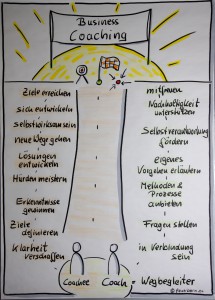 Business
Coaching
Ziele erreichen
sich entwickeln
Selbstwirksam sein
neue Wege gehen
Lösungen
entwickeln
Hürden meistern
Erkenntnisse
gewinnen
Ziele
definieren
Klarheit
verschaffen
mitfreuen
Nachhaltigkeit
unterstützen
Selbstverantwortung
fördern
eigenes
Vorgehen erläutern
Methoden &
Prozesse
anbieten
Fragen stellen
in Verbindung
sein
Coachee
Coach = Wegbegleiter